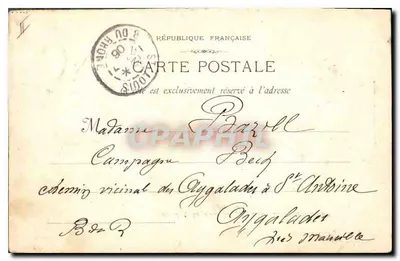 RÉPUBLIQUE FRANÇAISE
CARTE POSTALE
est exclusivement réservé à l'adresse
ST LOUIS
B. DU RHONE
06
Madame Bazoll
Campagne Beck
chemin vicinal des Aygalades à St Antoine
Aygalades
B du R près Marseille